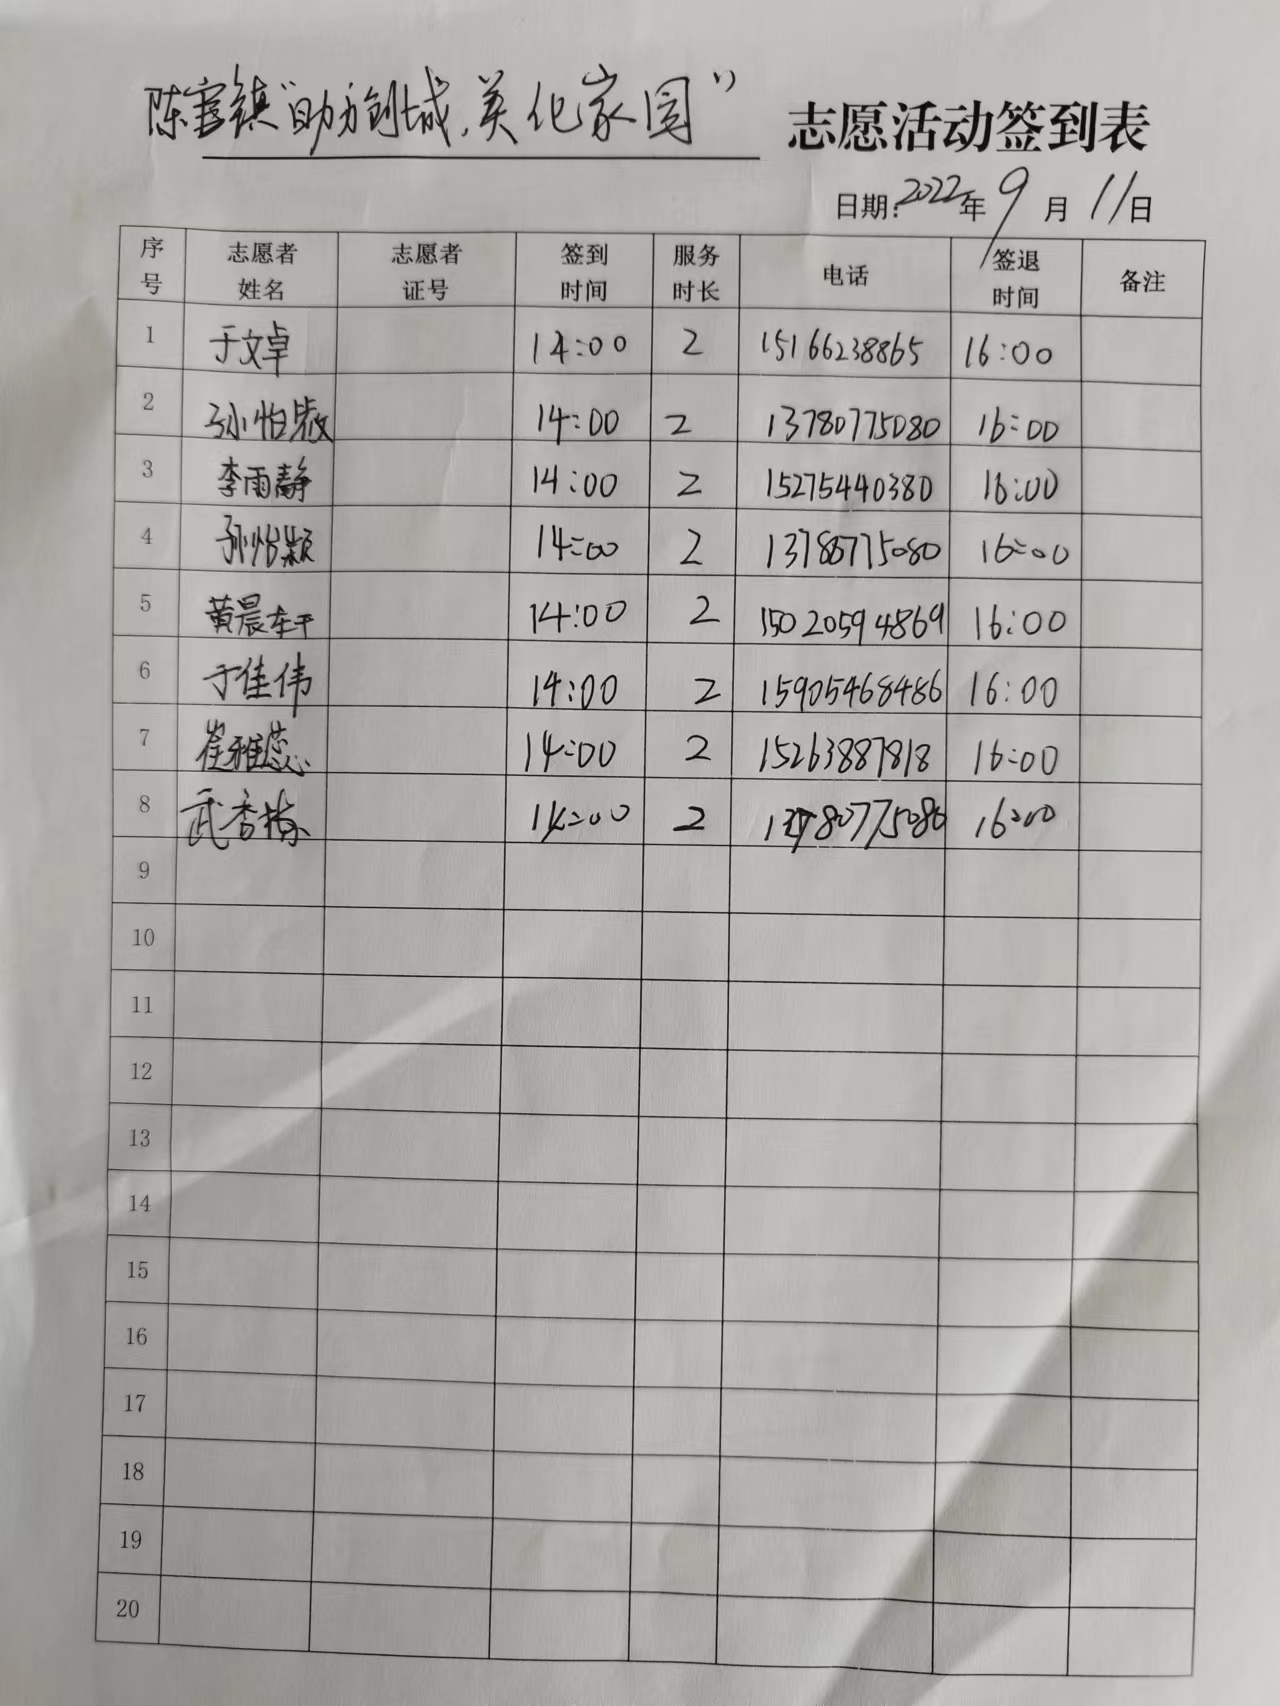 陈官镇“助力创城,美化家园” 志愿活动签到表
日期:2022年9月11日
序号 志愿者姓名 志愿者证号 签到时间 服务时长 电话 签退时间 备注
1 于文卓 14:00 2 15166238865 16:00
2 孙怡 14:00 2 13780775080 16:00
3 李雨静 14:00 2 15275440380 16:00
4 孙怡颖 14:00 2 13780775080 16:00
5 黄晨轩 14:00 2 15020594869 16:00
6 于佳伟 14:00 2 15905468486 16:00
7 崔雅蕊 14:00 2 15263887818 16:00
8 武香梅 14:00 2 13780775080 16:00
9
10
11
12
13
14
15
16
17
18
19
20